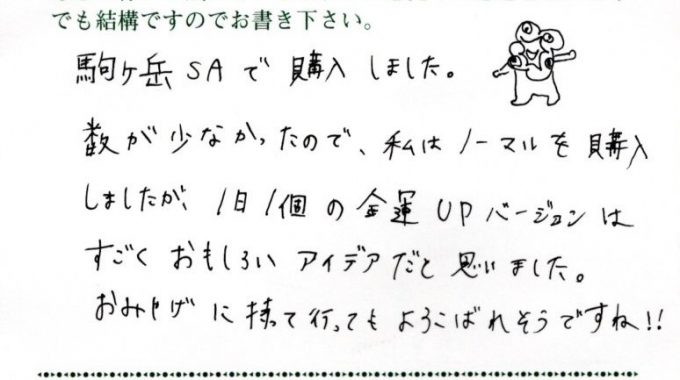 でも結構ですのでお書き下さい。
駒ヶ岳SAで購入しました。
数が少なかったので、私はノーマルを購入
しましたが、1日1個の金運UPバージョンは
すごくおもしろいアイデアだと思いました。
おみやげに持って行ってもよろこばれそうですね!!